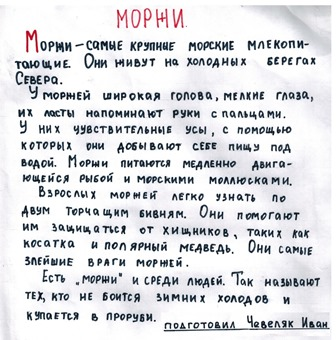 МОРЖИ.
Моржи – самые крупные морские млекопи-
тающие. Они живут на холодных берегах
Севера.
У моржей широкая голова, мелкие глаза,
их ласты напоминают руки с пальцами.
У них чувствительные усы, с помощью
которых они добывают себе пищу под
водой. Моржи питаются медленно двига-
ющейся рыбой и морскими моллюсками.
Взрослых моржей легко узнать по
двум торчащим бивням. Они помогают
им защищатся от хищников, таких как
косатка и полярный медведь. Они самые
злейшие враги моржей.
Есть „моржи" и среди людей. Так называют
тех, кто не боится зимних холодов и
купается в проруби. подготовил Чевеляк Иван